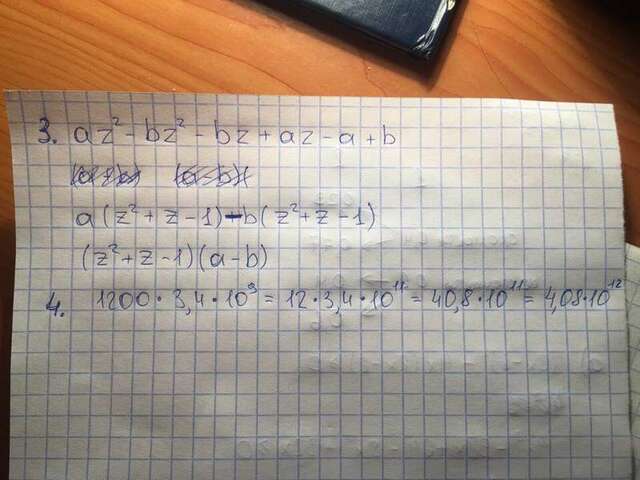 3. az² - bz² - bz + az - a + b
a(z² + z - 1) - b(z² + z - 1)
(z² + z - 1)(a - b)
4. 1200 · 3,4 · 10⁹ = 12 · 3,4 · 10¹¹ = 40,8 · 10¹¹ = 4,08 · 10¹²